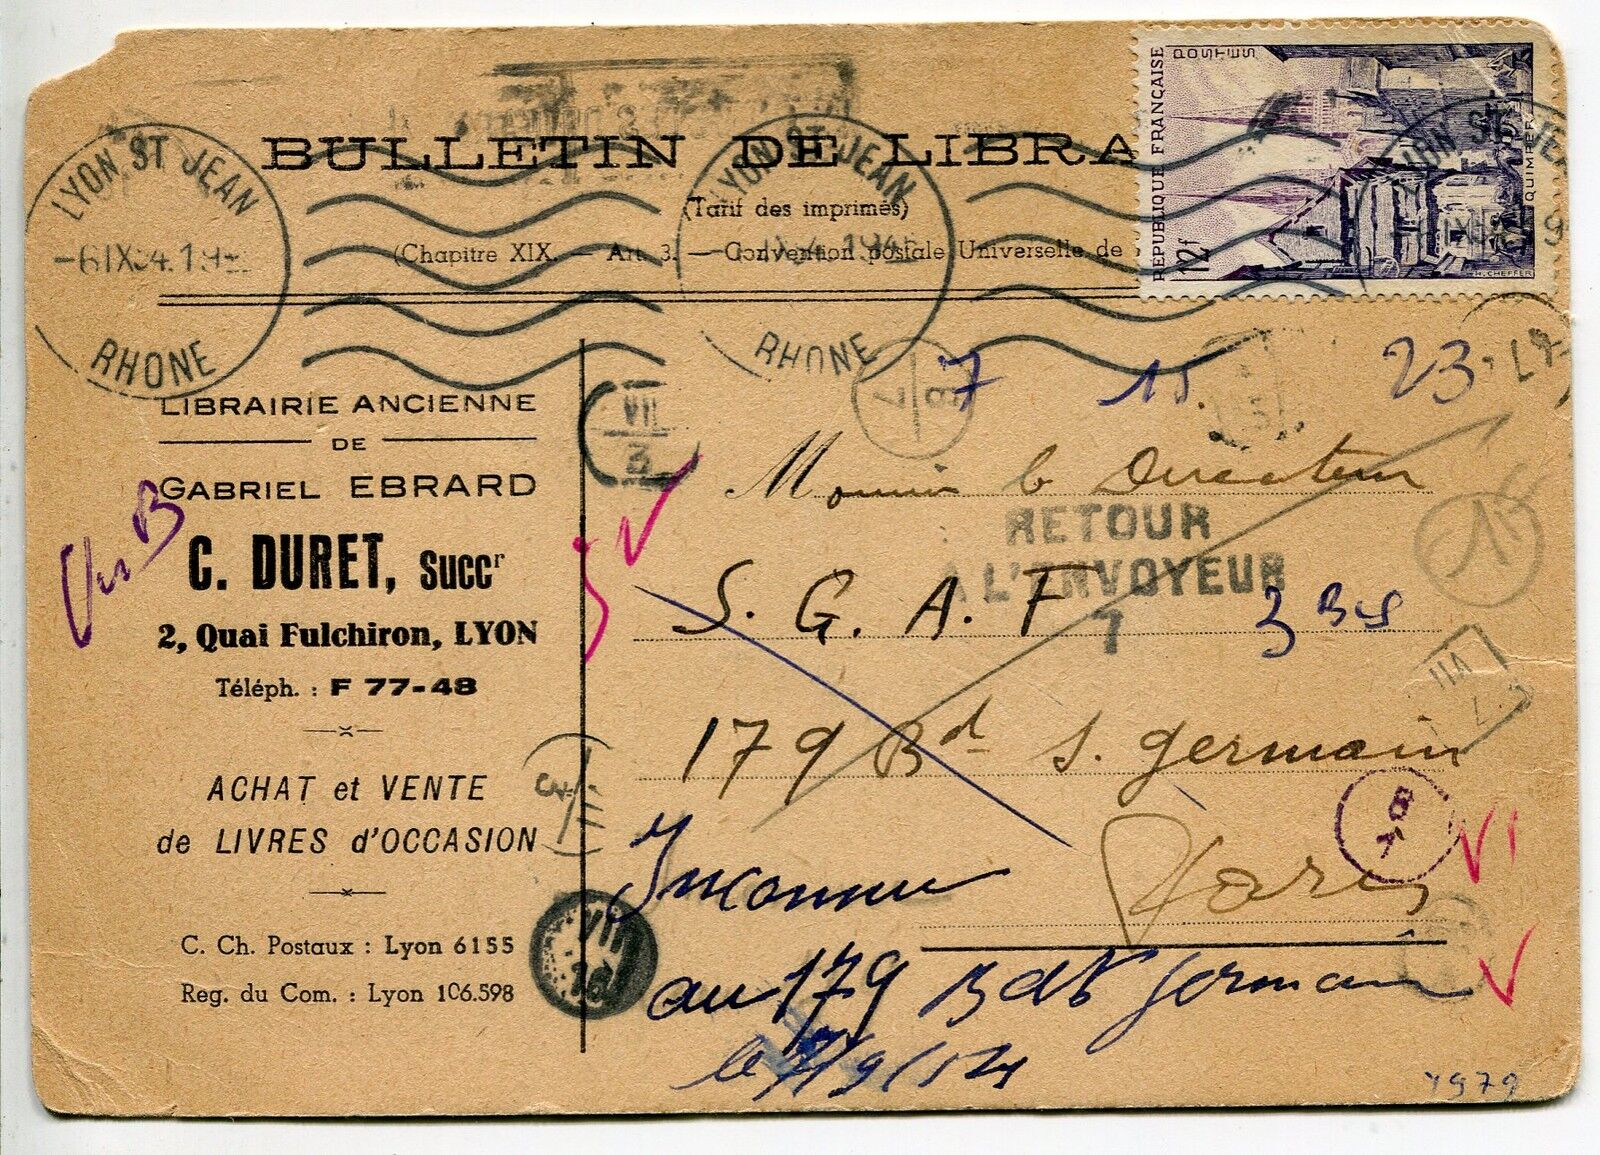 BULLETIN DE LIBRA
(Tarif des imprimés)
(Chapitre XIX. — Art. 3. — Convention postale Universelle de
RÉPUBLIQUE FRANÇAISE
POSTES
12f
QUIMPER
H. CHEFFER
LYON ST JEAN
-6 IX 54
RHONE
LYON ST JEAN
RHONE
LYON ST JEAN
LIBRAIRIE ANCIENNE
DE
GABRIEL EBRARD
C. DURET, Succr
2, Quai Fulchiron, LYON
Téléph. : F 77-48
ACHAT et VENTE
de LIVRES d'OCCASION
C. Ch. Postaux : Lyon 6155
Reg. du Com. : Lyon 106.598
7 15. 23
VII
3
8
7
Monsieur le Directeur
RETOUR
A L'ENVOYEUR
7
S. G. A. F 3 Bis
179 Bd S. Germain
Paris
8
7
Inconnu
au 179 Bd St Germain
le 7/9/54
1979